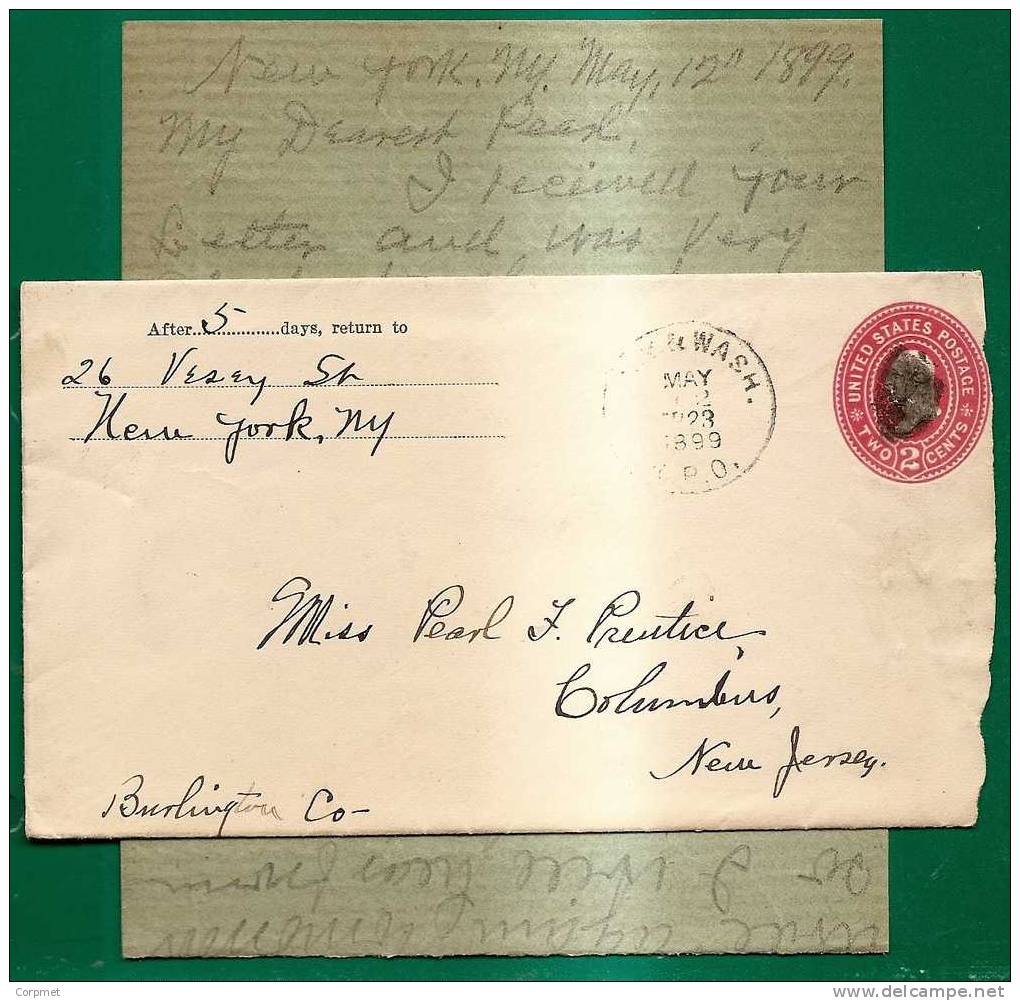 New York, NY. May, 12" 1899.
My Dearest Pearl,
I reciwell your
Letter and was Very
After 5 days, return to
26 Vesey St
New York, NY
& WASH.
MAY
1899
R.P.O.
UNITED STATES POSTAGE
TWO 2 CENTS
Miss Pearl F. Prentice,
Columbus,
New Jersey.
Burlington Co-
so I will hear from
Corpmet
delcampe.net